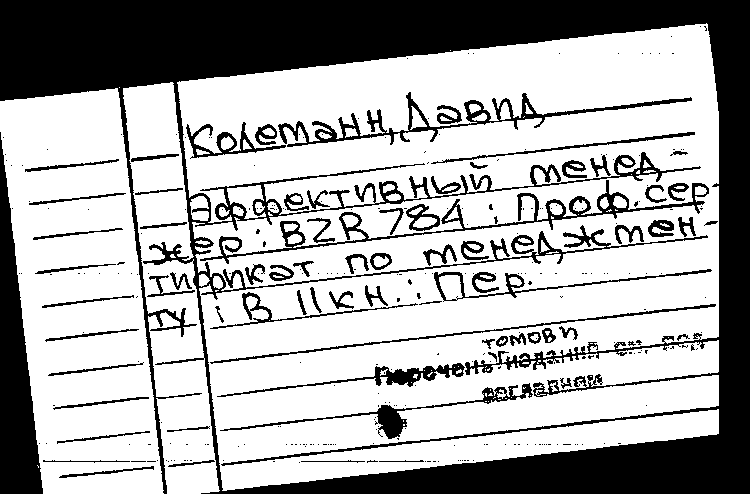 Колеманн, Давид
Эффективный менед-
жер : BZR 784 : Проф. сер-
тификат по менеджмен-
ту : В 11 кн. : Пер.
томов и
Перечень изданий см. под
заглавием